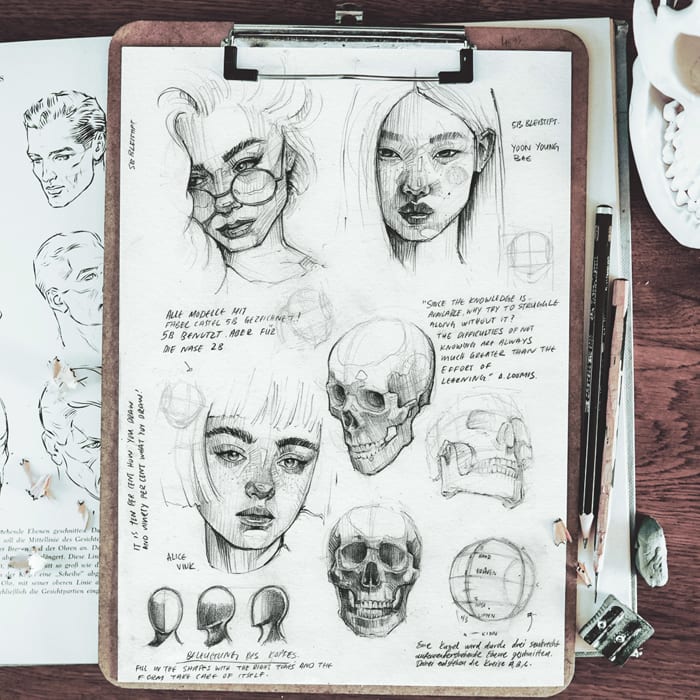 5B BLEISTIFT
5B BLEISTIFT.
YOON YOUNG
BAE
ALLE MODELLE MIT
FABER CASTEL 5B GEZEICHNET!
5B BENUTZT. ABER FÜR
DIE NASE 2B
"SINCE THE KNOWLEDGE IS
AVAILABLE, WHY TRY TO STRUGGLE
ALONG WITHOUT IT?
THE DIFFICULTIES OF NOT
KNOWING ARE ALWAYS
MUCH GREATER THAN THE
EFFORT OF
LEARNING" A. LOOMIS.
IT IS TEN PER CENT HOW YOU DRAW
AND NINETY PER CENT WHAT YOU DRAW!
ALICE
VINK
HAAR
BRAUEN
NASE
LIPPEN
KINN
BELEUCHTUNG DES KOPFES.
FILL IN THE SHAPES WITH THE RIGHT TONES AND THE
FORM TAKE CARE OF ITSELF.
Eine Kugel wird durch drei senkrecht
aufeinanderstehende Ebene geschnitten.
Dabei entstehen die Kreise A,B,C.
stehende Ebenen geschnitten. Da
soll die Mittellinie des Gesichte
er Brauen
der Ohren an. D
Diese Lin
so groß wie d
eine „Scheibe" ab
Ohr, mit seiner oberen Linie
schließlich die Gesichtpartien eing